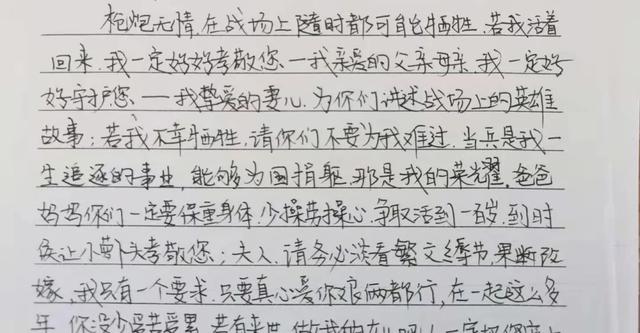 枪炮无情,在战场上随时都可能牺牲.若我活着
回来.我一定好好孝敬您一我亲爱的父亲母亲.我一定好
好守护您一我挚爱的妻儿.为你们讲述战场上的英雄
故事;若我不幸牺牲,请你们不要为我难过.当兵是我一
生追逐的事业,能够为国捐躯.那是我的荣耀.爸爸
妈妈你们一定要保重身体.少操劳操心.争取活到一百岁.到时
侯让小萝卜头孝敬您;夫人.请务必淡看繁文缛节,果断改
嫁.我只有一个要求.只要真心爱你娘俩都行,在一起这么多
年.你没少受苦受累.若有来世.做我的女